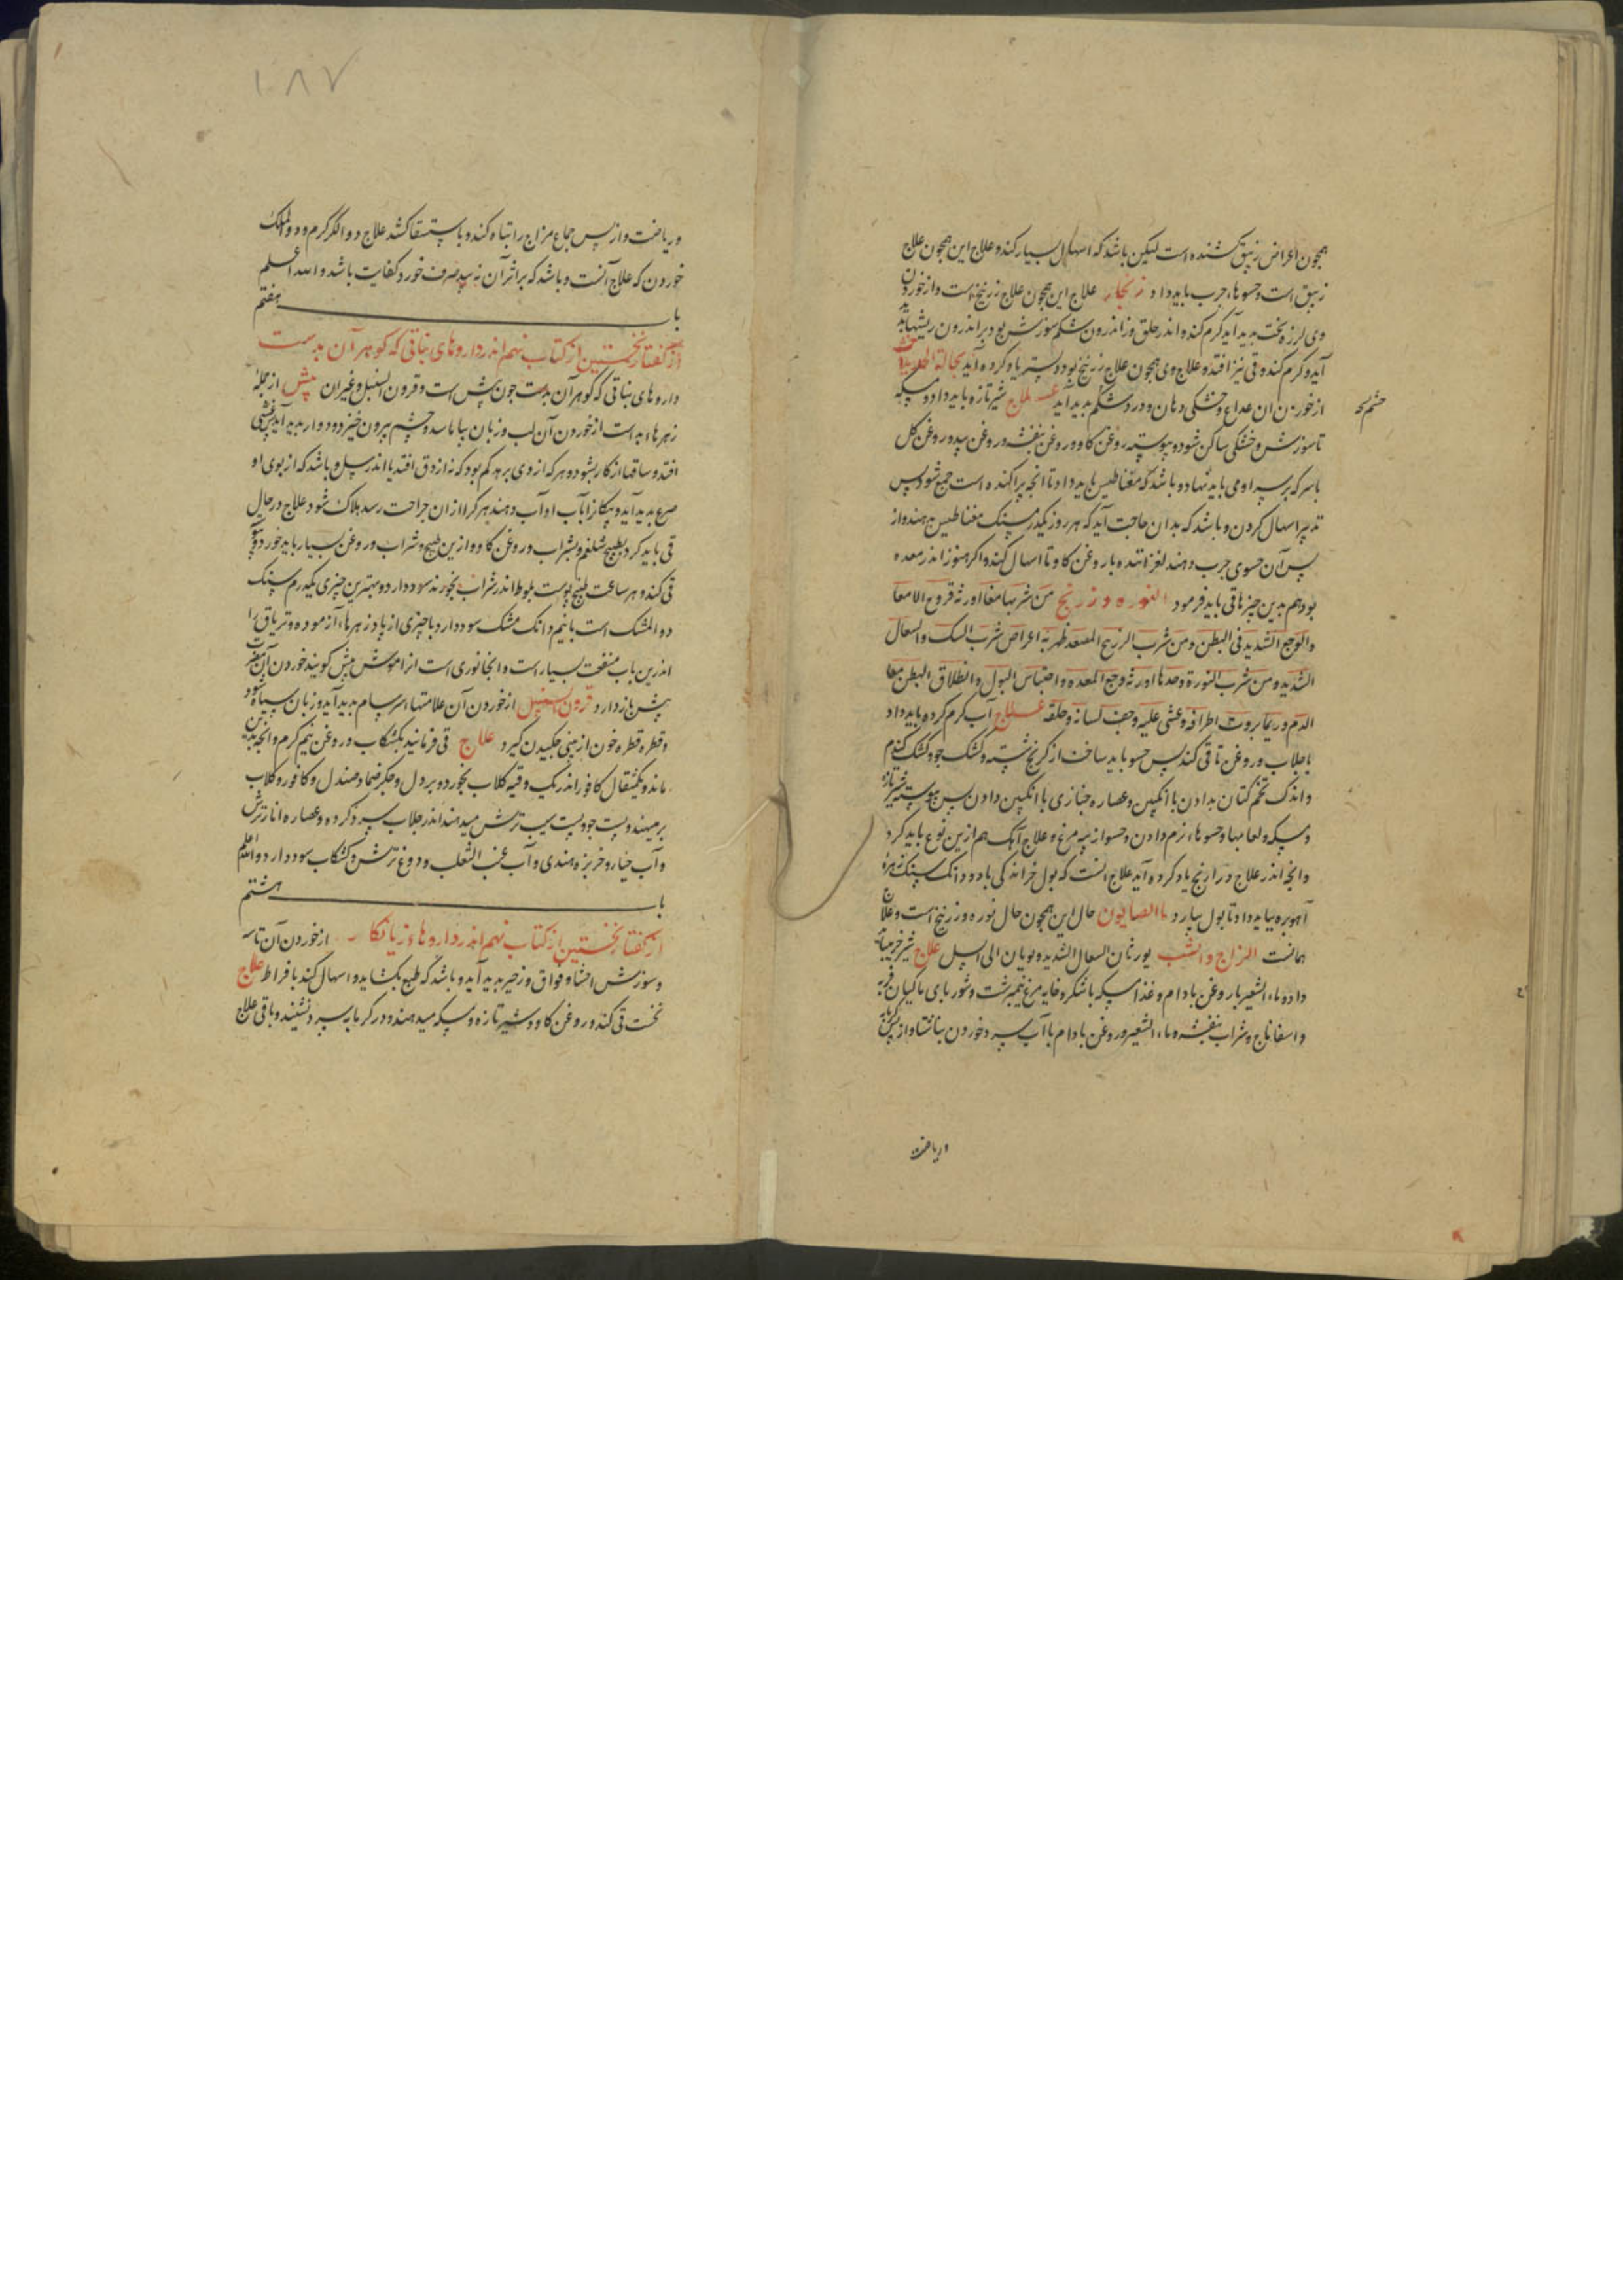 همچون اعراض زیبق کشنده است لیکن باشد که اسهال بسیار کند و علاج این همچون علاج
زیبق است و حسوهاء چرب باید داد زنکار علاج این همچون علاج زرنیخ است و از خوردن
وی لرزه سخت پدید آید کرم کنده اندر حلق و اندرون شکم سوزش بود و بر اندرون ریشها پدید
آید و کرم کنده و قی نیز افتد و علاج وی همچون علاج زرنیخ بود و بستر یاد کرده آید
از خوردن آن صداع و خشکی دهان و درد شکم پدید آید علاج شیر تازه باید داد و مسکه
تا سوزش و خشکی ساکن شود و پیوسته روغن کاو و روغن بنفشه و روغن بید و روغن کل
با سرکه بر سر او می باید نهاد و باشد که مغناطیس باید داد تا آنجه پراکنده است جمع شود پس
تدبیر اسهال کردن و باشد که بدان حاجت آید که هر روز یکدرمسنک مغناطیس میدهند و از
پس آن حسوی چرب دهند لغزاننده با روغن کاو تا اسهال کند و اکر هنوز اندر معده
بود هم بدین چیزها قی باید فرمود النوره و زرنیخ من شربها معا اورثه قروح الامعا
والوجع الشدید فی البطن و من شرب الزرنیخ المصعد ظهر به اعراض شرب السک والسعال
الشدید و من شرب النورة وحدها اورثه وجع المعده و احتباس البول و انطلاق البطن معا
الدم و ربما بردت اطرافه و غشی علیه و جف لسانه و حلقه علاج آب کرم کرده باید داد
با جلاب و روغن تا قی کند پس حسو باید ساخت از کرنج شسته و کشک جو و کشک کندم
و اندک تخم کتان بدادن با انکبین و عصاره خبازی با انکبین دادن پس پیوسته شیر تازه
و مسکه و لعابها و حسوهاء نرم دادن و حسو از پیه مرغ و علاج آهک هم ازین نوع باید کرد
و آنجه اندر علاج ذراریح یاد کرده آید علاج آنست که بول خراند کی با دو دانک سنک زهره
آهو بره بیاید داد تا بول بیارد ماء الصابون حال این همچون حال نوره و زرنیخ است و علاج
همانست الزاج والشب یورثان السعال الشدید و یودیان الی السل علاج شیر خر میباید
داد و ماء الشعیر با روغن بادام و غذا مسکه با شکر و خایه مرغ نیمبرشت و شوربای ماکیان فربه
و اسفاناج و شراب بنفشه و ماء الشعیر و روغن بادام با آب سرد خوردن ناشتا و از پس کرمابه
وریاضت
۱۰۸۷
وریاضت و از پس جماع مزاج را تباه کند و باستسقا کشد علاج دواء الکرکم و دواء الملک
خوردن که علاج آنست و باشد که بر اثر آن نبید صرف خورد کفایت باشد والله اعلم
باب هفتم
از کفتار نخستین از کتاب نهم اندر داروهای نباتی که کوهر آن بدست
داروهای نباتی که کوهر آن بدست چون بیش است و قرون السنبل و غیر آن بیش از جمله
زهرهاء بد است از خوردن آن لب و زبان بیاماسد و چشم بیرون خیزد و دوار پدید آید و غشی
افتد و ساقها از کار بشود و هر که از وی برهد کم بود که نه از دق افتد یا اندر سل و باشد که از بوی او
صرع پدید آید و پیکانرا بآب او آب دهند هر کرا از آن جراحت رسد هلاک شود علاج در حال
قی باید کرد بطبیخ شلغم و بشراب و روغن کاو و ازین طبیخ و شراب و روغن بسیار باید خورد و
قی کند و هر ساعت طبیخ پوست بلوط اندر شراب بخورند سود دارد و بهترین چیزی یکدرم سنک
دواء المشک است با نیم دانک مشک سود دارد یا چیزی از پادزهرهاء آزموده و تریاق را
اندرین باب منفعت بسیار است و آنجا نوری است انرا موش بیش کویند خوردن آن مضرت
بیش باز دارد قرون السنبل از خوردن آن علامتهاء سرسام پدید آید و زبان سیاه شود
و قطره قطره خون از بینی چکیدن کیرد علاج قی فرمانید بکشکاب و روغن نیم کرم و آنجه بدین
ماند و یکمثقال کافور اندر یک وقیه کلاب بخورد و بر دل و جکر ضماد صندل و کافور و کلاب
بر مینهند و پست جو و پست سیب ترش میدهند اندر جلاب سرد کرده و عصاره انار ترش
و آب خیار و خربزه هندی و آب عنب الثعلب و دوغ ترش و کشکاب سود دارد والله اعلم
باب هشتم
از کفتار نخستین از کتاب نهم اندر داروهاء زیانکار از خوردن آن تاسه
و سوزش احشا و فواق و زحیر پدید آید و باشد که طبع بکشاید و اسهال کند با فراط علاج
نخست قی کند و روغن کاو و شیر تازه و مسکه میدهند و در کرمابه سرد نشیند و باقی علاج